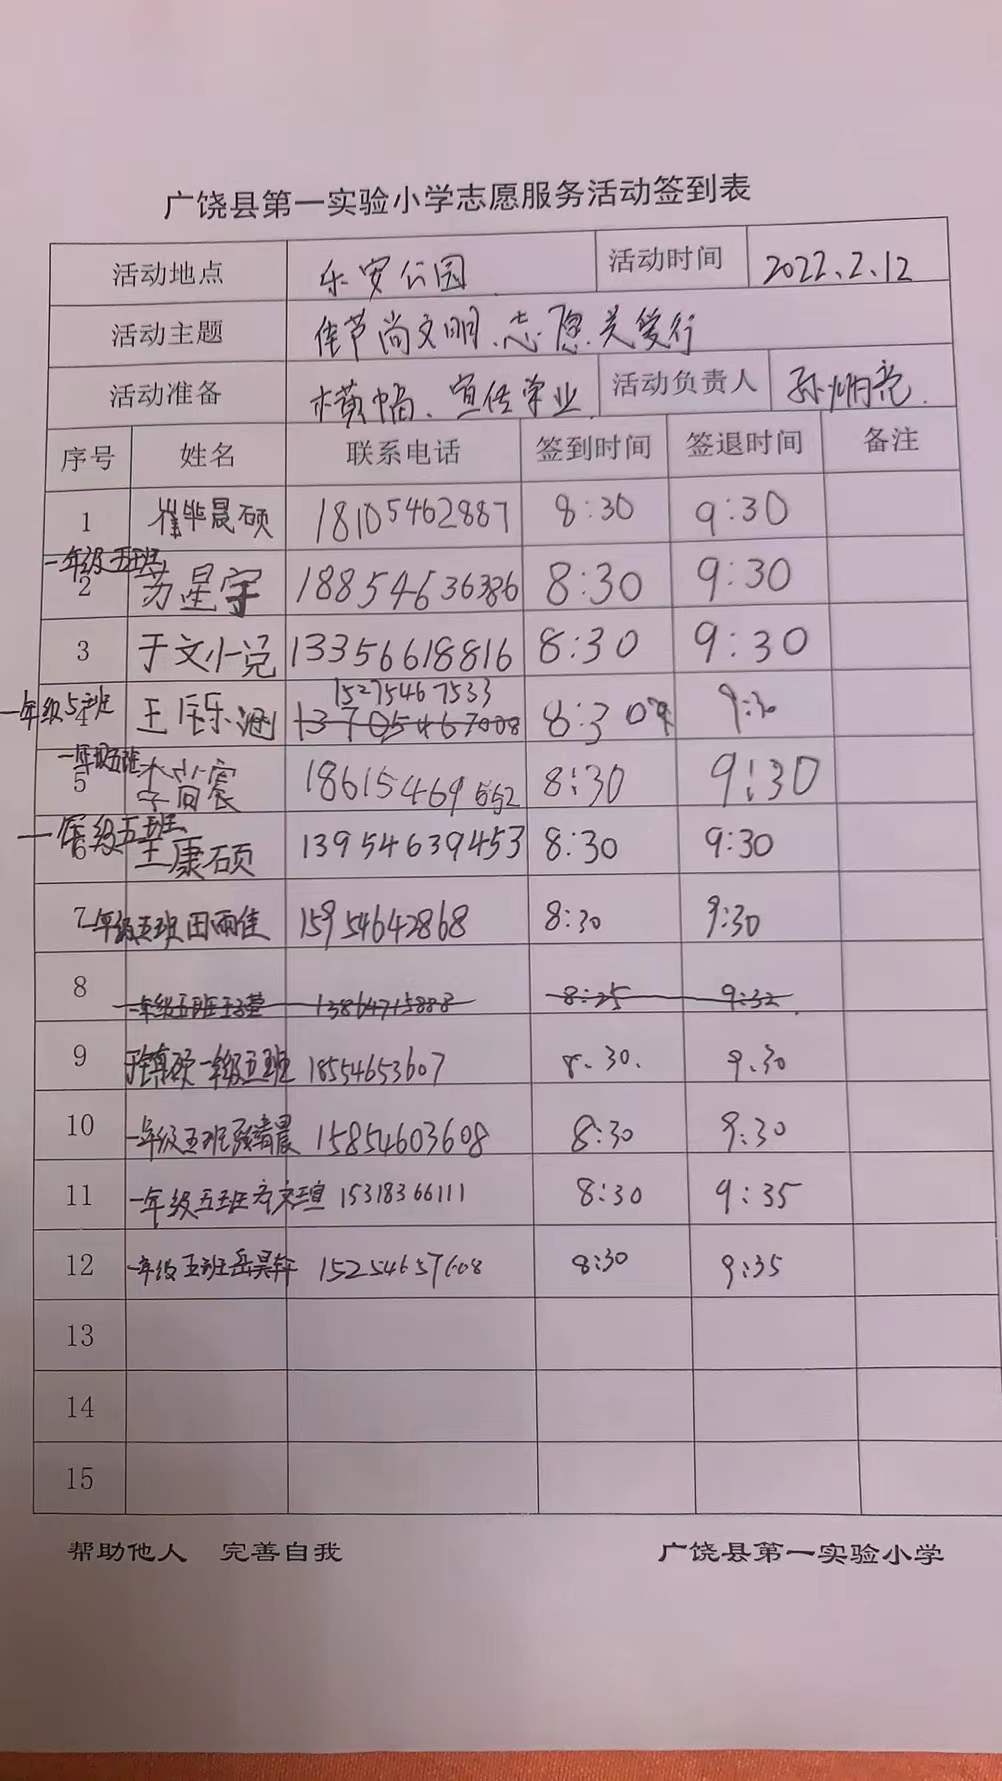 广饶县第一实验小学志愿服务活动签到表
活动地点 乐安公园 活动时间 2022.2.12
活动主题 佳节尚文明、志愿关爱行
活动准备 横幅、宣传 活动负责人 孙炳亮
序号 姓名 联系电话 签到时间 签退时间 备注
1 崔毕晨硕 18105462887 8:30 9:30
一年级五班
2 苏星宇 18854636386 8:30 9:30
3 于文小兑 13356618816 8:30 9:30
15275467533
一年级5班
4 王乐涵 13705467008 8:30 9:30
一年级五班
5 李尚宸 18615469552 8:30 9:30
一年级五班
6 王康硕 13954639453 8:30 9:30
7 一年级五班 田雨佳 15954642868 8:30 9:30
8 一年级五班王子萱 13864715888 8:25 9:32
9 镇硕 一年级五班 18554653607 8.30. 9.30
10 一年级五班张靖晨 15854603608 8:30 9:30
11 一年级五班齐文瑄 15318366111 8:30 9:35
12 一年级五班岳昊轩 15254657608 8:30 9:35
13
14
15
帮助他人 完善自我 广饶县第一实验小学